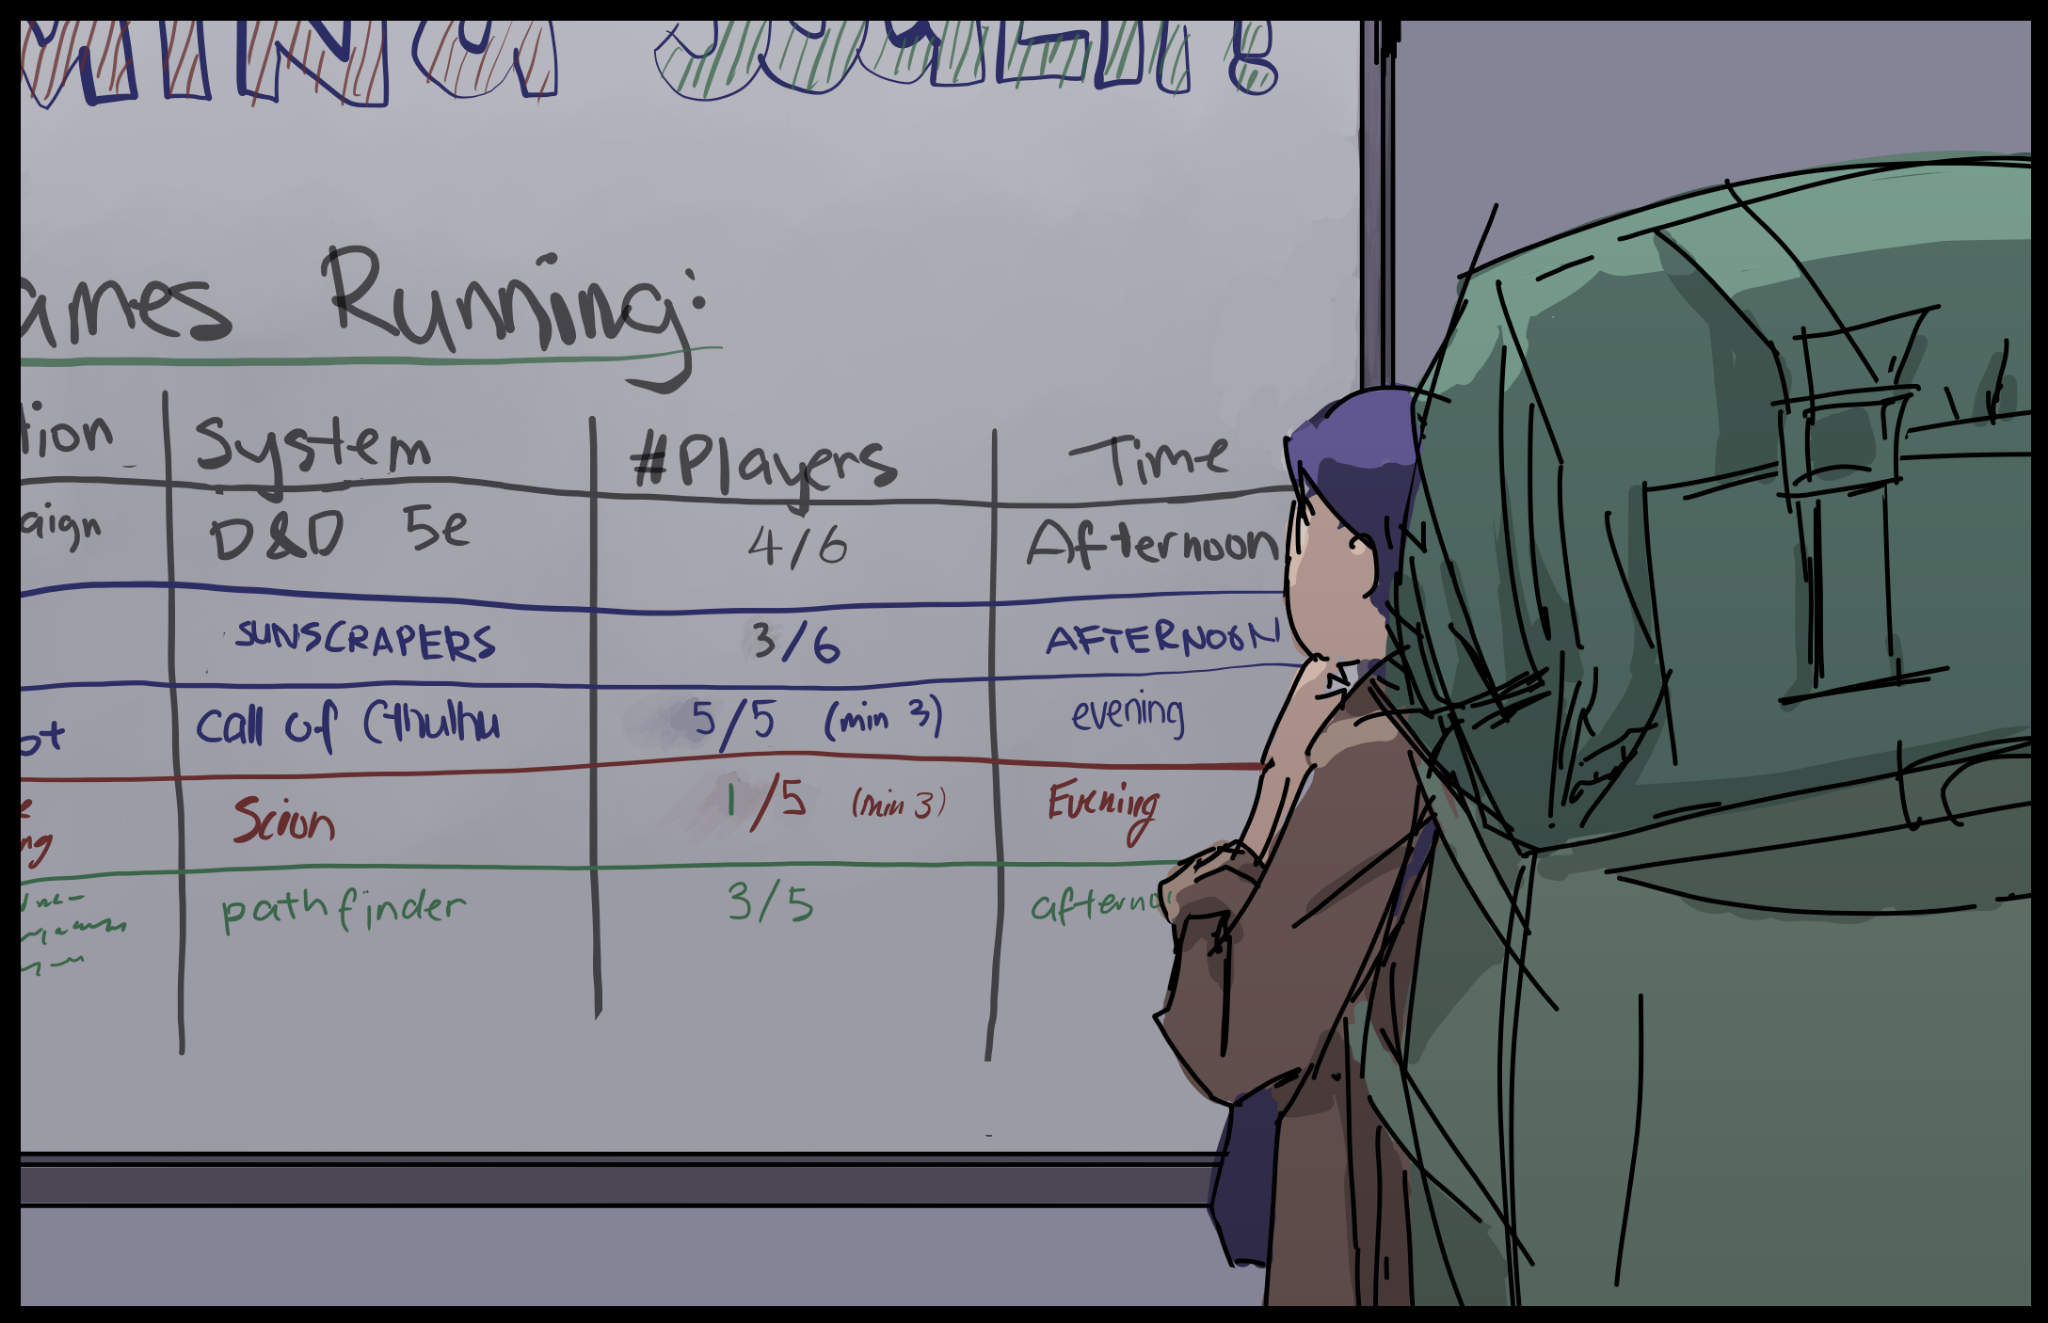 ames Running:
tion System #Players Time
aign D&D 5e 4/6 Afternoon
SUNSCRAPERS 3/6 AFTERNOON
ot Call of Cthulhu 5/5 (min 3) evening
ng Scion 1/5 (min 3) Evening
pathfinder 3/5 afterno